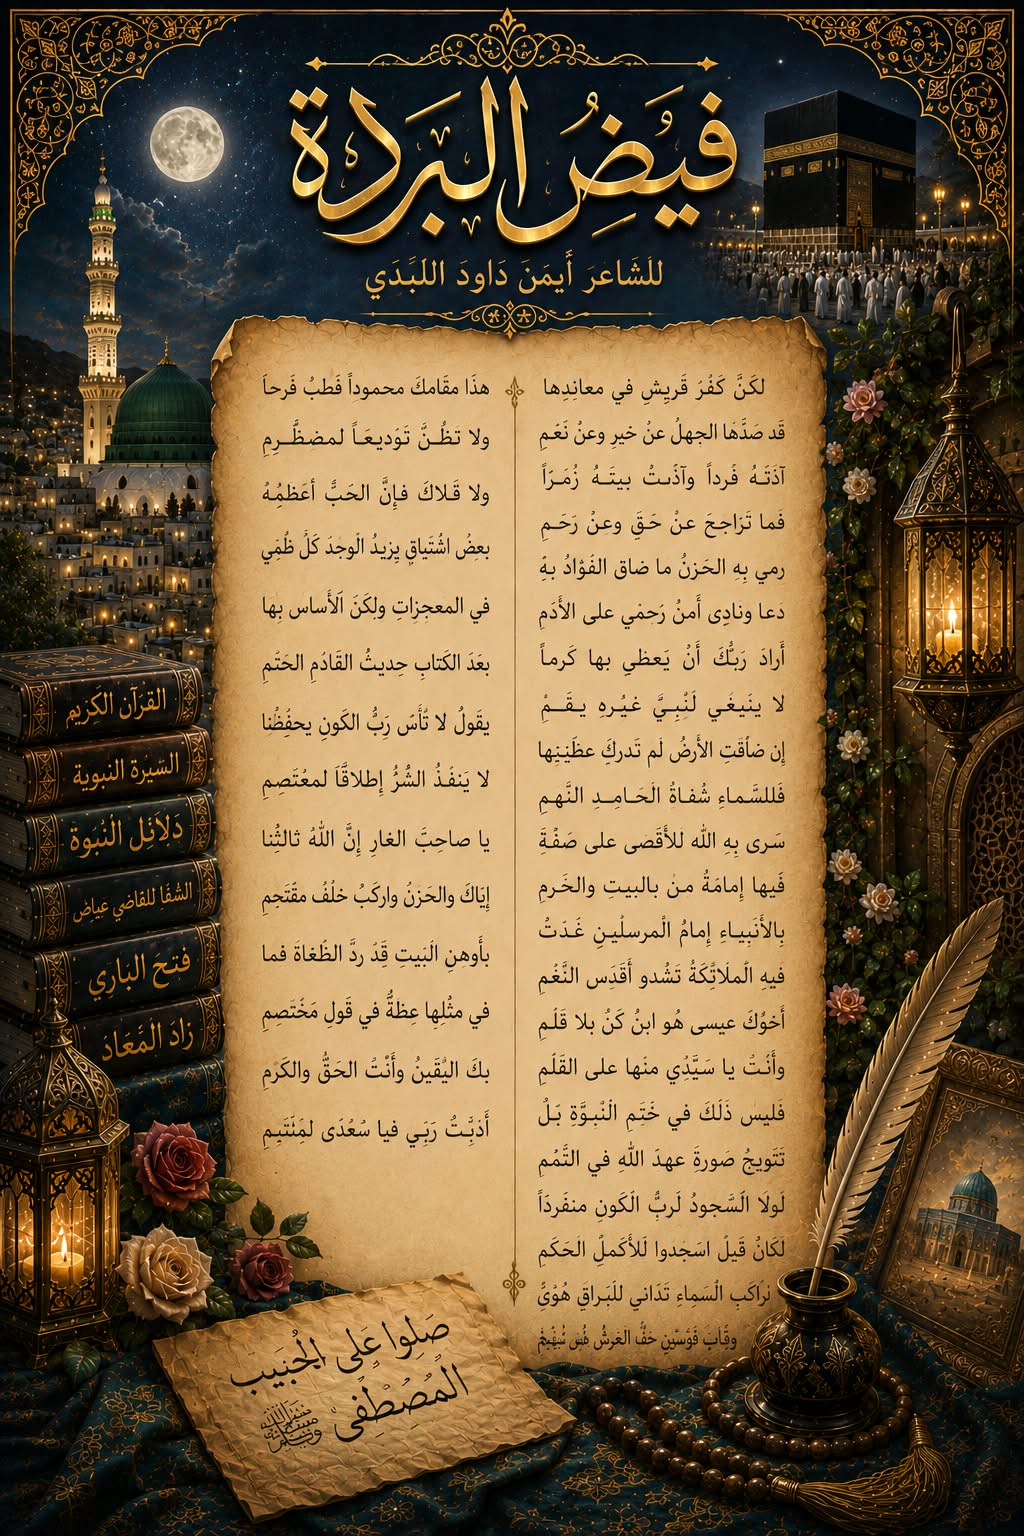 فيض البردة
للشاعر أيمن داود اللبدي
لكنَّ كفرَ قريشٍ في معاندِها
قد صدَّها الجهلُ عنْ خيرِ وعنْ نَعَمِ
آذتَهُ فَرداً وآذتْ بيتَهُ زُمَرَاً
فما تَرَاجعَ عنْ حَقَ وعنْ رَحَمِ
رمي بِهِ الحَزنُ ما ضاق الفَوَادُ بهِ
دعا ونادِى أَمنُ رَحمْي على الأدَمِ
أَرادَ رَبُّكَ أَنْ يَعطيِ بها كَرماً
لا ينَبغَي لَنْبِيَّ غيُرهِ يقَمْ
إن ضاقَتِ الأرضُ لم تَدركِ
فَللسَّماءِ شُفاةُ الَحَامِدِ النَّهمِ
سَرى بِهِ الله للأَقصَى على صَفْةَ
فَيها إمامَةُ منْ بالبيتِ والخَرمِ
بِالأَنَبِياءِ إمامُ الْمرسلْينِ غَدَتُ
فيهِ الْملَائَكَةُ تَشْدو أَقْدَس النَّغْمِ
أَخوُكَ عيسى هُو ابنُ كَنْ بلا قلَمِ
وأَنتْ يا سَيَّدُي منْها على القَلَمِ
فَليس ذَلَكَ في خَتِمِ الْنْبوَّةِ بَلُ
تَتَويجُ صَورةِ عهدَ اللهِ في التَّمُمِ
لَولَا الَسَّجودُ لَربُّ الَكَونِ منفَردَاً
لكانُ قيلُ اسَجَدوا لَلأَكملُ الَحَكَمِ
السَماءِ تَدَاني للَبَراقَ هُوَىً
قَوْسَينِ العَرشُ
هذَا مقَامكَ محموداً فَطبُ فَرحاَ
ولا تظُنَّ تَوَديعَاً لمضظَّرِمِ
ولا قَلاكَ فإنَّ الحَبَّ أعَظمُهُ
بعضُ اشْتَياقٍ يِزيدُ الَوجدَ كَلُ ظُمَي
في المعجزاتِ ولكنَ الَأَساس بها
بعَدَ الكتابِ حِديثُ القَادُمِ الحَتَمِ
يقولُ لا تَأَسَ رَبُّ الكَونِ يحفُظُنا
لا يَنفَذُ الشُرُ إطلاقَاً لمعُتَصِمِ
يا صاحِبَ الغارِ إنَّ اللهُ ثالثُنا
إيَاكَ والحَزنُ واركَبُ خلْفُ مقْتَحِمِ
بأَوهنِ الَبَيتِ قَدْ ردَّ الطَغاةَ فما
في مثُلِها عِظةٌ في قَولِ مَخْتَصِمِ
بكَ اليٌقَينُ وأَنْتُ الحَقُّ والكَرَمِ
أَدَبَْتُ رَبَي فيا سُعُدَى لمِنْتَبِمِ
القرآن الكريم
السيرة النبوية
دلائل النبوة
الشفا للقاضي عياض
فتح الباري
زاد المعاد
صلوا على الحبيب
المصطفى